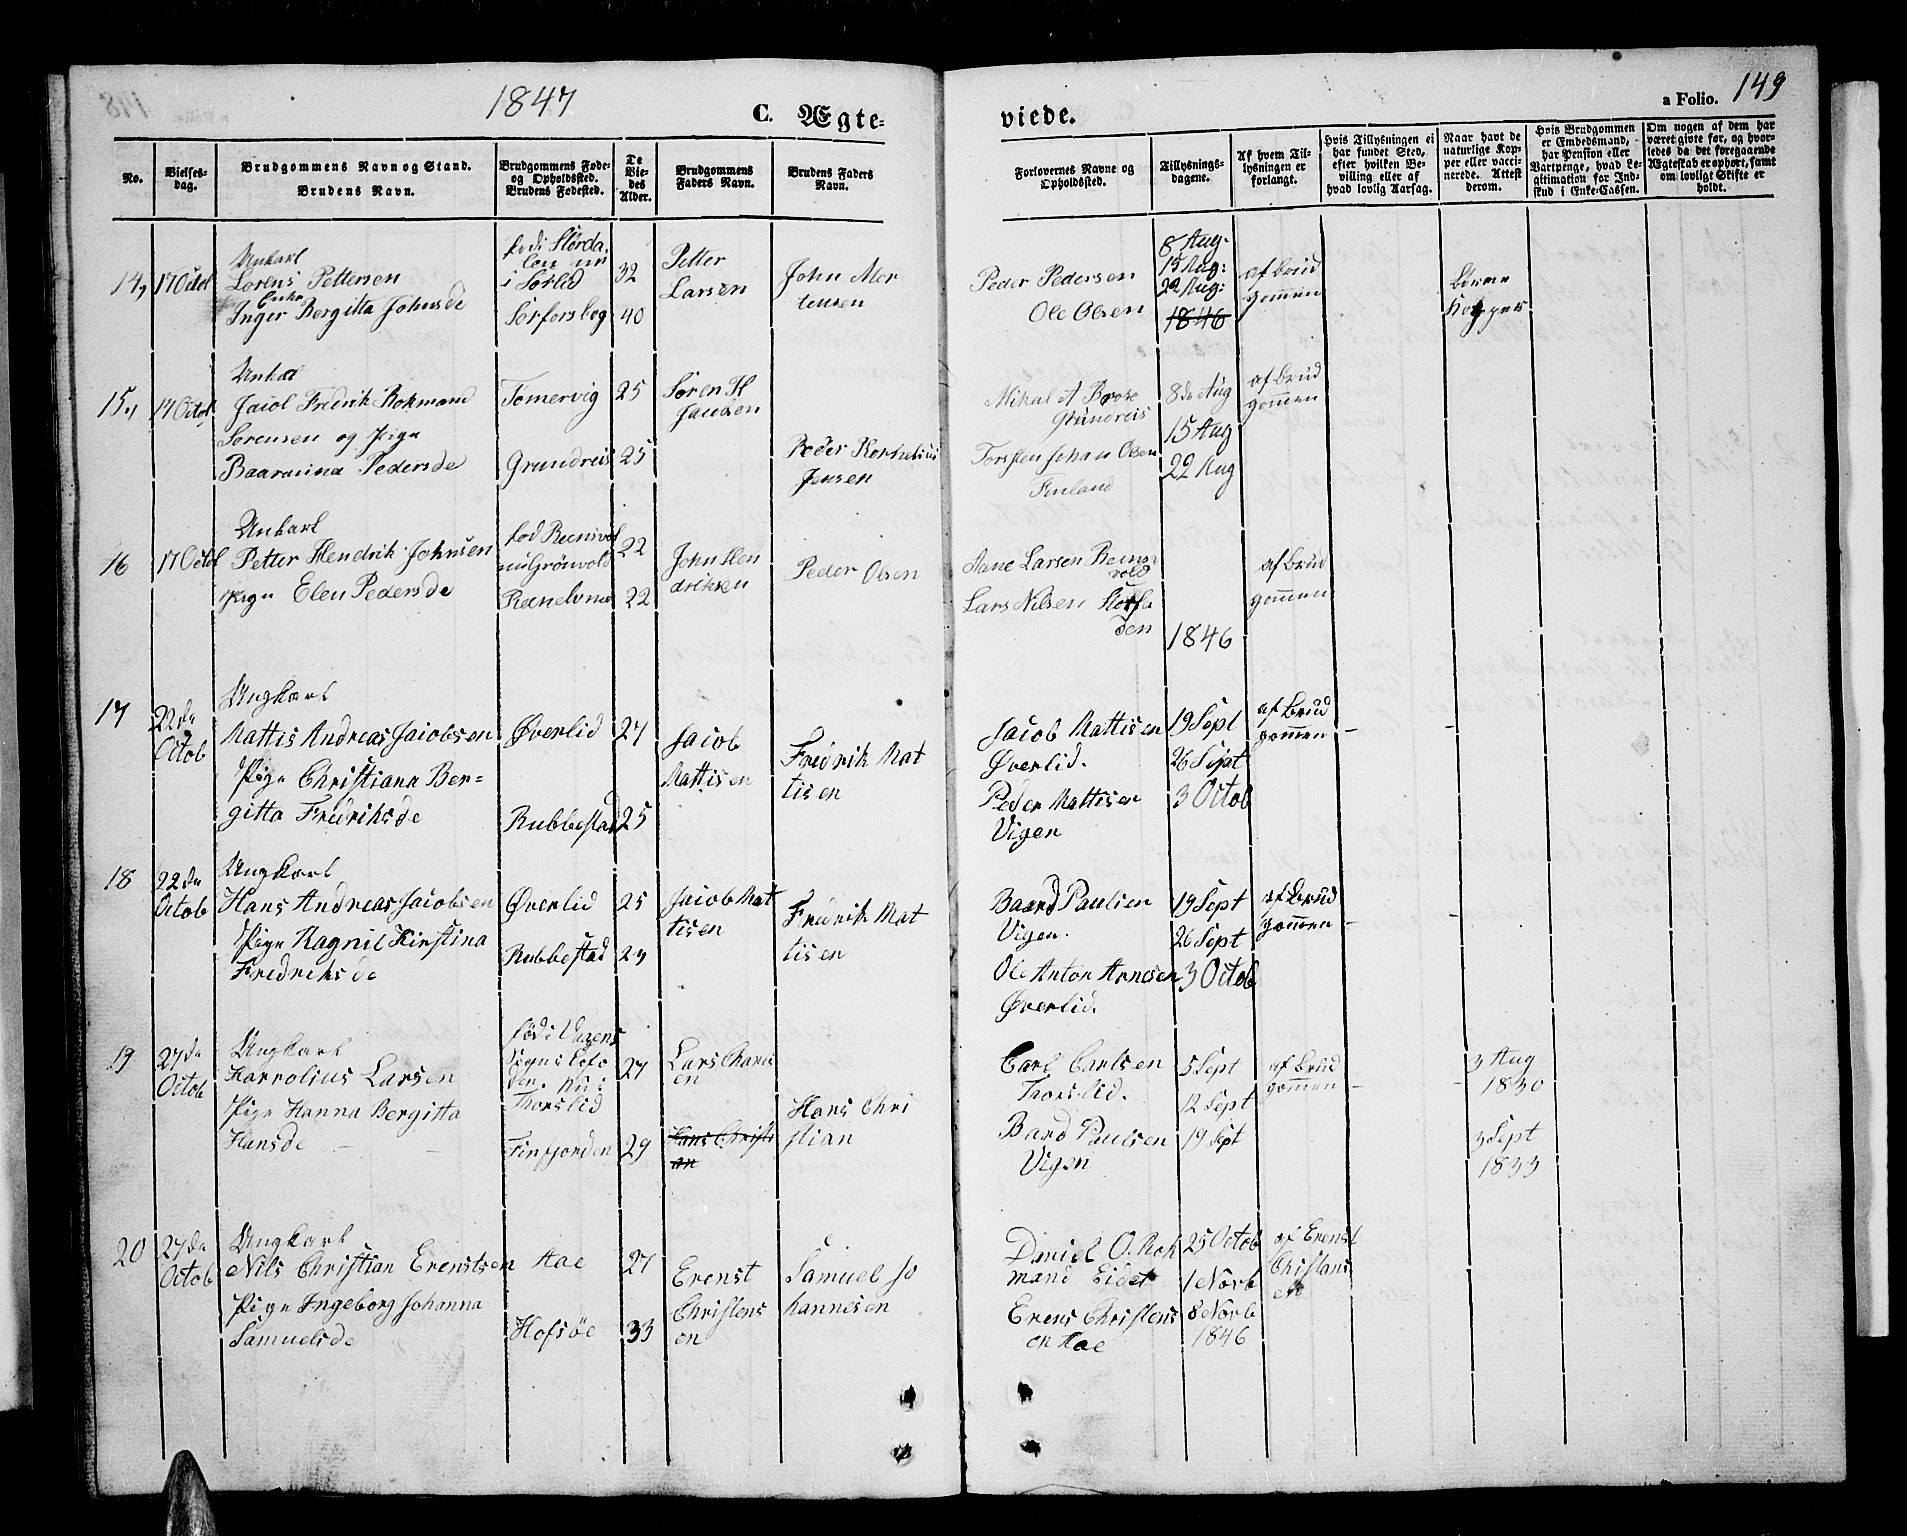 1847
C. Ægte-
viede.
a Folio. 149
No.
Vielses-
dag.
Brudgommens Navn og Stand.
Brudens Navn.
Brudgommens Føde-
og Opholdssted.
Brudens Fødested.
De
Vie-
des
Alder.
Brudgommens
Faders Navn.
Brudens Faders
Navn.
Forlovernes Navne og
Opholdssted.
Tillysnings-
dagene.
Af hvem Til-
lysningen er
forlangt.
Hvis Tillysningen ei
har fundet Sted,
efter hvilken Be-
villing eller af
hvad lovlig Aarsag.
Naar havt de
naturlige Kop-
per eller vacci-
nerede. Attest
derom.
Hvis Brudgommen
er Embedsmand,
har Pension eller
Vartpenge, hvad Le-
gitimation for Ind-
skud i Enke-Cassen.
Om nogen af dem har
været givte før, og hvor-
ledes da det foregaaende
Ægteskab er ophørt, samt
om lovligt Skifte er
holdt.
14, 17 Octol
Unkarl
Lorens Pettersen
Enke
Inger Bergitta Johnsde
i Sørlid
Sørforsbog
32
40
Petter
Larsen
John Mor
tensen
Peder Pedersen
Ole Olsen
8 Aug.
15 Aug:
22 Aug:
1846
af brud
gommen
Kopper
15, 17 Octol
Jacol Fredrik Rokmand
Sørensen og Pige
Baaranina Pedersde
Tomervig
Grundreis
25
25
Søren H
Jacobsen
Peder Kornelius
Jensen
Mikal A
Grundreis
Torsten Johan Olsen
Finland
8de Aug
15 Aug
22 Aug
af brud
gommen
16 17 Octol
Unkarl
Petter Hendrik Johnsen
Pige Elen Pedersde
22
22
John Hen
driksen
Peder Olsen
Aane Larsen Reins
vold
Lars Nilsen
den
1846
af brud
gommen
17 22de
Octob
Ungkarl
Mattis Andreas Jacobsen
Pige Christiana Ber-
gitta Fredriksde
Øverlid
Rubbestad
27
25
Jacob
Mattisen
Fredrik Mat
tisen
Jacob Mattisen
Øverlid.
Peder Mattisen
Vigen
19 Sept
26 Sept
3 Octob
af Brud
gommen
18 22de
Octob
Ungkarl
Hans Andreas Jacobsen
Pige Ragnil Kirstina
Fredriksde
Øverlid
Rubbestad
25
Jacob Mat
tisen
Fredrik Mat
tisen
Baard Paulsen
Vigen.
Ole Anton Arnesen
Øverlid.
19 Sept
26 Sept
3 Octob
af Brud
gommen
19 27de
Octob
Ungkarl
Karrolius Larsen
Pige Hanna Bergitta
Hansde
fød i Vagens
Sogns Lofo
den. Nu i
Thorslid
Finfjorden
27
29
Lars
en
Hans Christi
an
Hans Chri
stian
Carl Carlsen
Thorslid.
Bard Paulsen
Vigen
5 Sept
12 Sept
19 Sept
af Brud
gommen
3 Aug
1830
3 Sept
1833
20 27de
Octob
Ungkarl
Nils Christian Erenstsen
Pige Ingeborg Johanna
Samuelsde
Aae
Hofsøe
27
33
Erenst
Christens
en
Samuel Jo
hannesen
Daniel O. Rok
mand Eidet
Erens Christens
en Aae
25 Octob
1 Novb
8 Novb
1846
af Erenst
Chistans
en